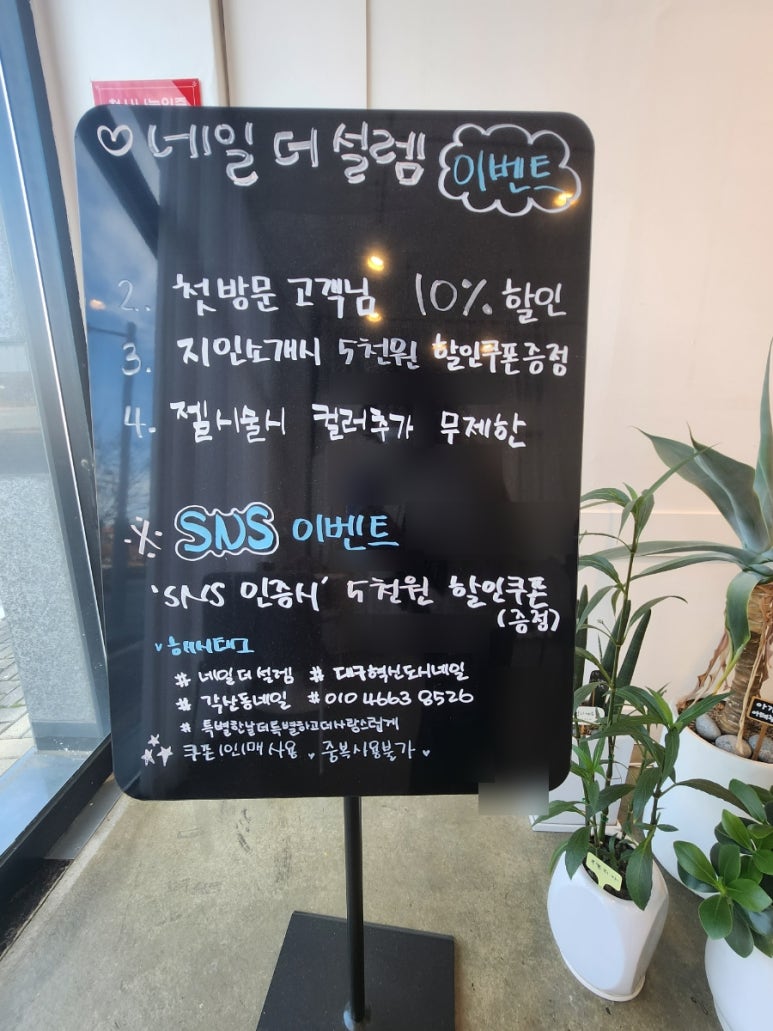 ♡ 네일 더 설렘 이벤트
2. 첫방문 고객님 10% 할인
3. 지인소개시 5천원 할인쿠폰증정
4. 젤시술시 컬러추가 무제한
※ SNS 이벤트
'SNS 인증시' 5천원 할인쿠폰
(증정)
해시태그
# 네일더설렘 # 대구혁신도시네일
# 각산동네일 #010 4663 8526
# 특별한날더특별하고더사랑스럽게
쿠폰1인1매 사용 중복사용불가